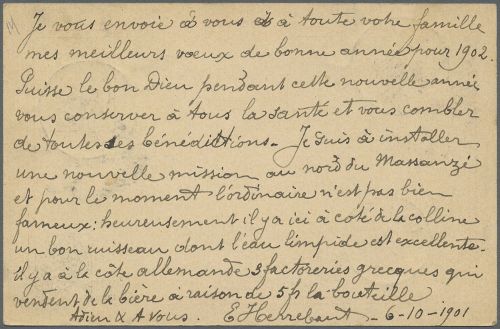 Je vous envoie à vous et à toute votre famille
mes meilleurs vœux de bonne année pour 1902.
Puisse le bon Dieu pendant cette nouvelle année
vous conserver à tous la santé et vous combler
de toutes les bénédictions. Je suis à installer
une nouvelle mission au nord du Massanzé
et pour le moment l'ordinaire n'est pas bien
fameux; heureusement il y a ici à côté de la colline
un bon ruisseau dont l'eau limpide est excellente.
il y a à la côte allemande 3 factoreries grecques qui
vendent de la bière à raison de 5 f la bouteille
Adieu & A vous. 6-10-1901